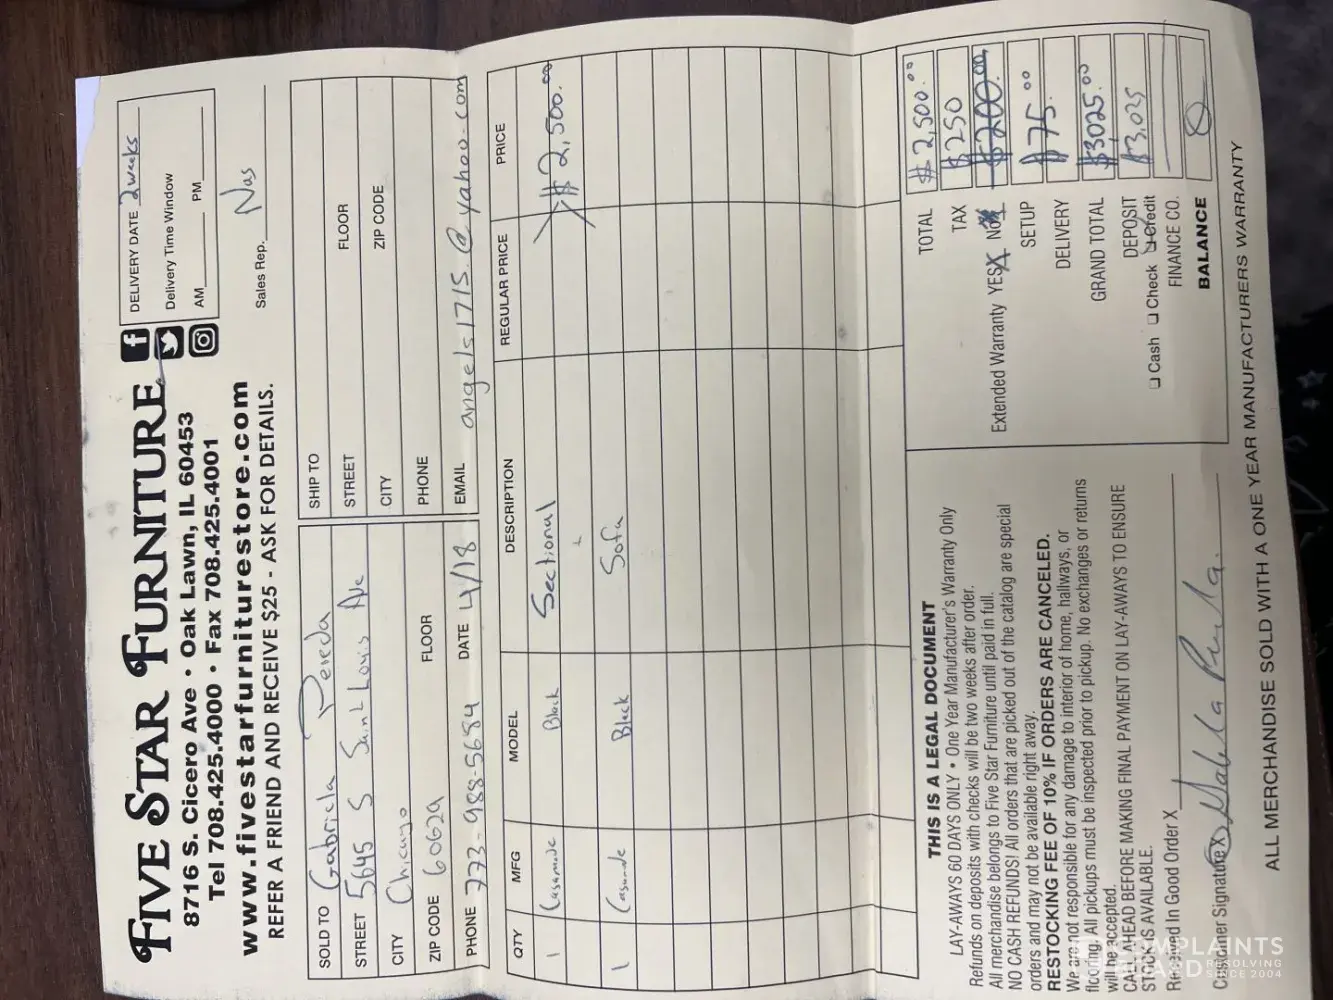 FIVE STAR FURNITURE
8716 S. Cicero Ave • Oak Lawn, IL 60453
Tel 708.425.4000 • Fax 708.425.4001
www.fivestarfurniturestore.com
REFER A FRIEND AND RECEIVE $25 - ASK FOR DETAILS.
DELIVERY DATE 2 weeks
Delivery Time Window
AM PM
Sales Rep. Nas
SOLD TO Gabriela Pereda
STREET 5645 S Saint Louis Ave
CITY Chicago
ZIP CODE 60629 FLOOR
PHONE 773-988-5684 DATE 4/18
SHIP TO
STREET FLOOR
CITY ZIP CODE
PHONE
EMAIL angels1715@yahoo.com
QTY MFG MODEL DESCRIPTION REGULAR PRICE PRICE
1 Casamode Black Sectional $2,500.00
1 Casamode Black Sofa
THIS IS A LEGAL DOCUMENT
LAY-AWAYS 60 DAYS ONLY • One Year Manufacturer's Warranty Only
Refunds on deposits with checks will be two weeks after order.
All merchandise belongs to Five Star Furniture until paid in full.
NO CASH REFUNDS! All orders that are picked out of the catalog are special
orders and may not be available right away.
RESTOCKING FEE OF 10% IF ORDERS ARE CANCELED.
We are not responsible for any damage to interior of home, hallways, or
flooring. All pickups must be inspected prior to pickup. No exchanges or returns
will be accepted.
CALL AHEAD BEFORE MAKING FINAL PAYMENT ON LAY-AWAYS TO ENSURE
STOCK IS AVAILABLE.
Received In Good Order X
Customer Signature X Gabriela Pereda
TOTAL $2,500.00
TAX $250
Extended Warranty YES X NO $200.00
SETUP $75.00
DELIVERY
GRAND TOTAL $3025.00
DEPOSIT $3,025
Cash Check Credit
FINANCE CO.
BALANCE
ALL MERCHANDISE SOLD WITH A ONE YEAR MANUFACTURERS WARRANTY
COMPLAINTS
BOARD RESOLVING
SINCE 2004